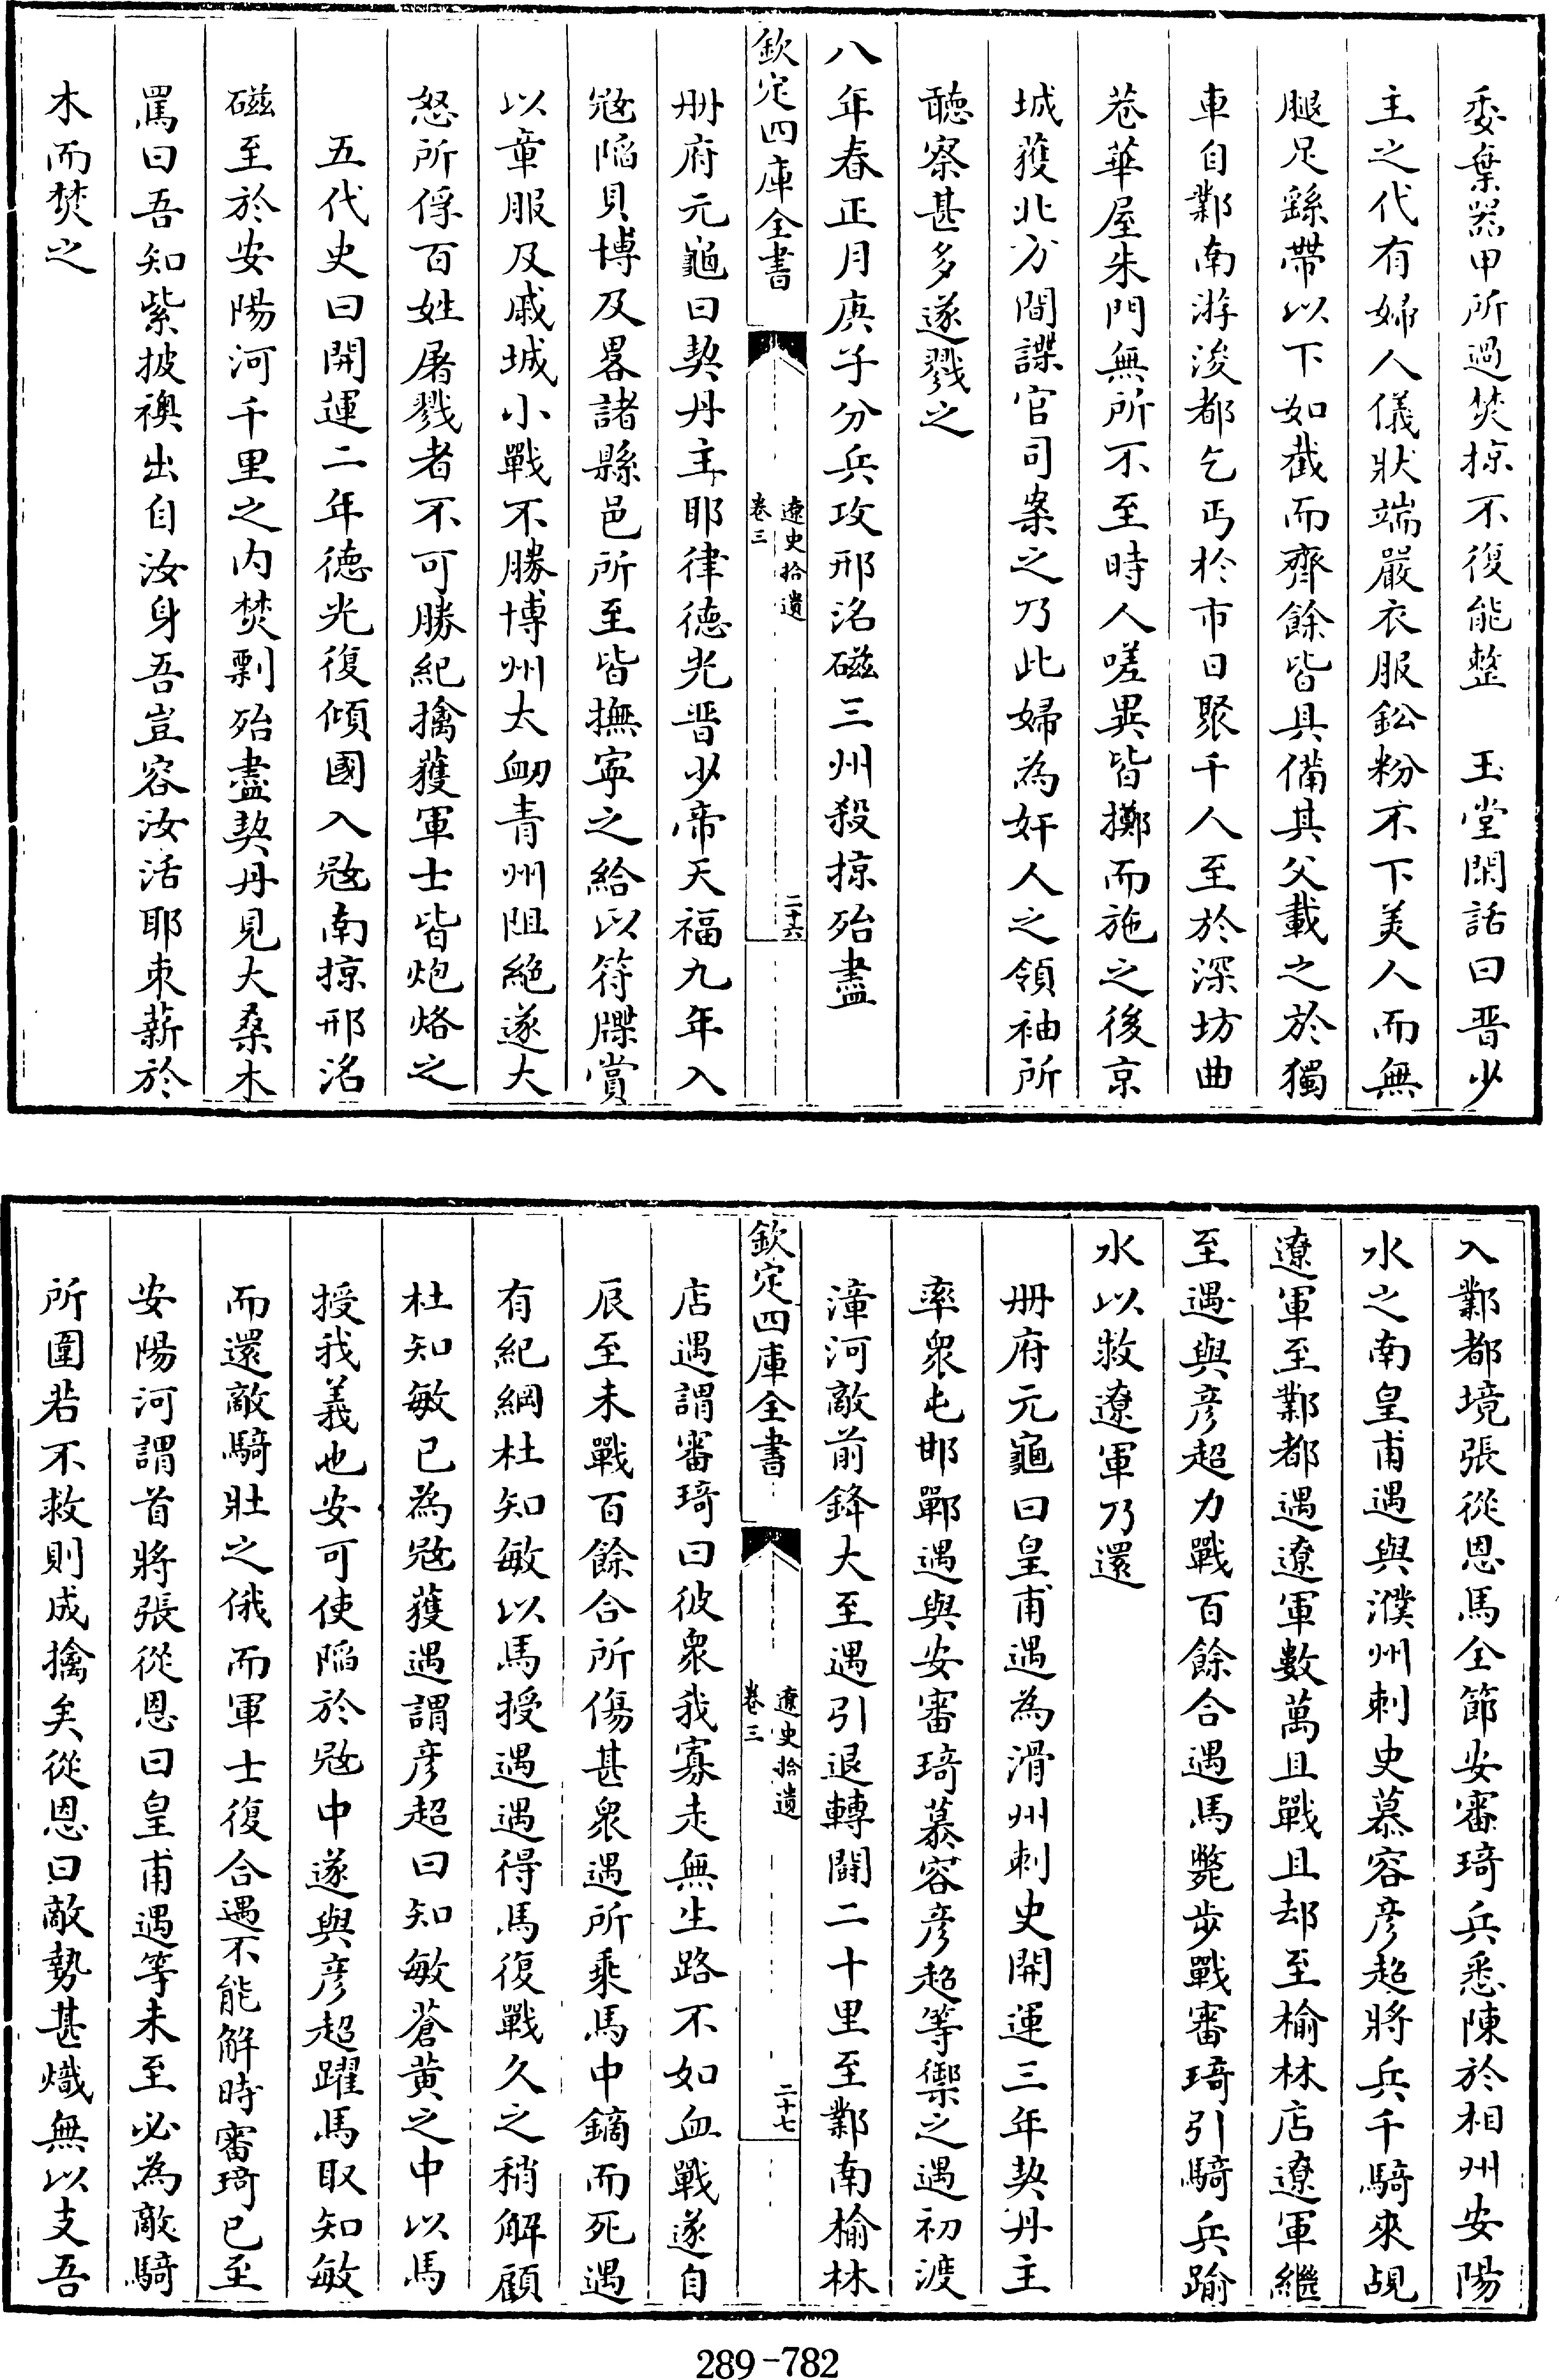 委棄器甲所過焚掠不復能整　玉堂閑話曰晋少
主之代有婦人儀狀端嚴衣服鈆粉不下美人而無
腿足繇帶以下如截而齊餘皆具備其父載之於獨
車自鄴南游浚都乞丐於市日聚千人至於深坊曲
巷華屋朱門無所不至時人嗟異皆擲而施之後京
城獲北方間諜官司案之乃此婦為奸人之領袖所
聽察甚多遂戮之
八年春正月庚子分兵攻邢洺磁三州殺掠殆盡
欽定四庫全書
遼史拾遺
卷三
二十六
冊府元龜曰契丹主耶律德光晋少帝天福九年入
寇陷貝博及畧諸縣邑所至皆撫寕之給以符牒賞
以章服及戚城小戰不勝博州太衂青州阻絕遂大
怒所俘百姓屠戮者不可勝紀擒獲軍士皆炮烙之
五代史曰開運二年德光復傾國入寇南掠邢洺
磁至於安陽河千里之内焚剽殆盡契丹見大桑木
罵曰吾知紫披襖出自汝身吾豈容汝活耶束薪於
木而焚之
入鄴都境張從恩馬全節安審琦兵悉陳於相州安陽
水之南皇甫遇與濮州刺史慕容彦超將兵千騎來覘
遼軍至鄴都遇遼軍數萬且戰且却至榆林店遼軍繼
至遇與彦超力戰百餘合遇馬斃步戰審琦引騎兵踰
水以救遼軍乃還
冊府元龜曰皇甫遇為滑州刺史開運三年契丹主
率衆屯邯鄲遇與安審琦慕容彦超等禦之遇初渡
漳河敵前鋒大至遇引退轉鬭二十里至鄴南榆林
欽定四庫全書
遼史拾遺
卷三
二十七
店遇謂審琦曰彼衆我寡走無生路不如血戰遂自
辰至未戰百餘合所傷甚衆遇所乘馬中鏑而死遇
有紀綱杜知敏以馬授遇遇得馬復戰久之稍解顧
杜知敏已為寇獲遇謂彦超曰知敏蒼黄之中以馬
授我義也安可使陷於寇中遂與彦超躍馬取知敏
而還敵騎壯之俄而軍士復合遇不能解時審琦已至
安陽河謂首將張從恩曰皇甫遇等未至必為敵騎
所圍若不救則成擒矣從恩曰敵勢甚熾無以支吾
289-782